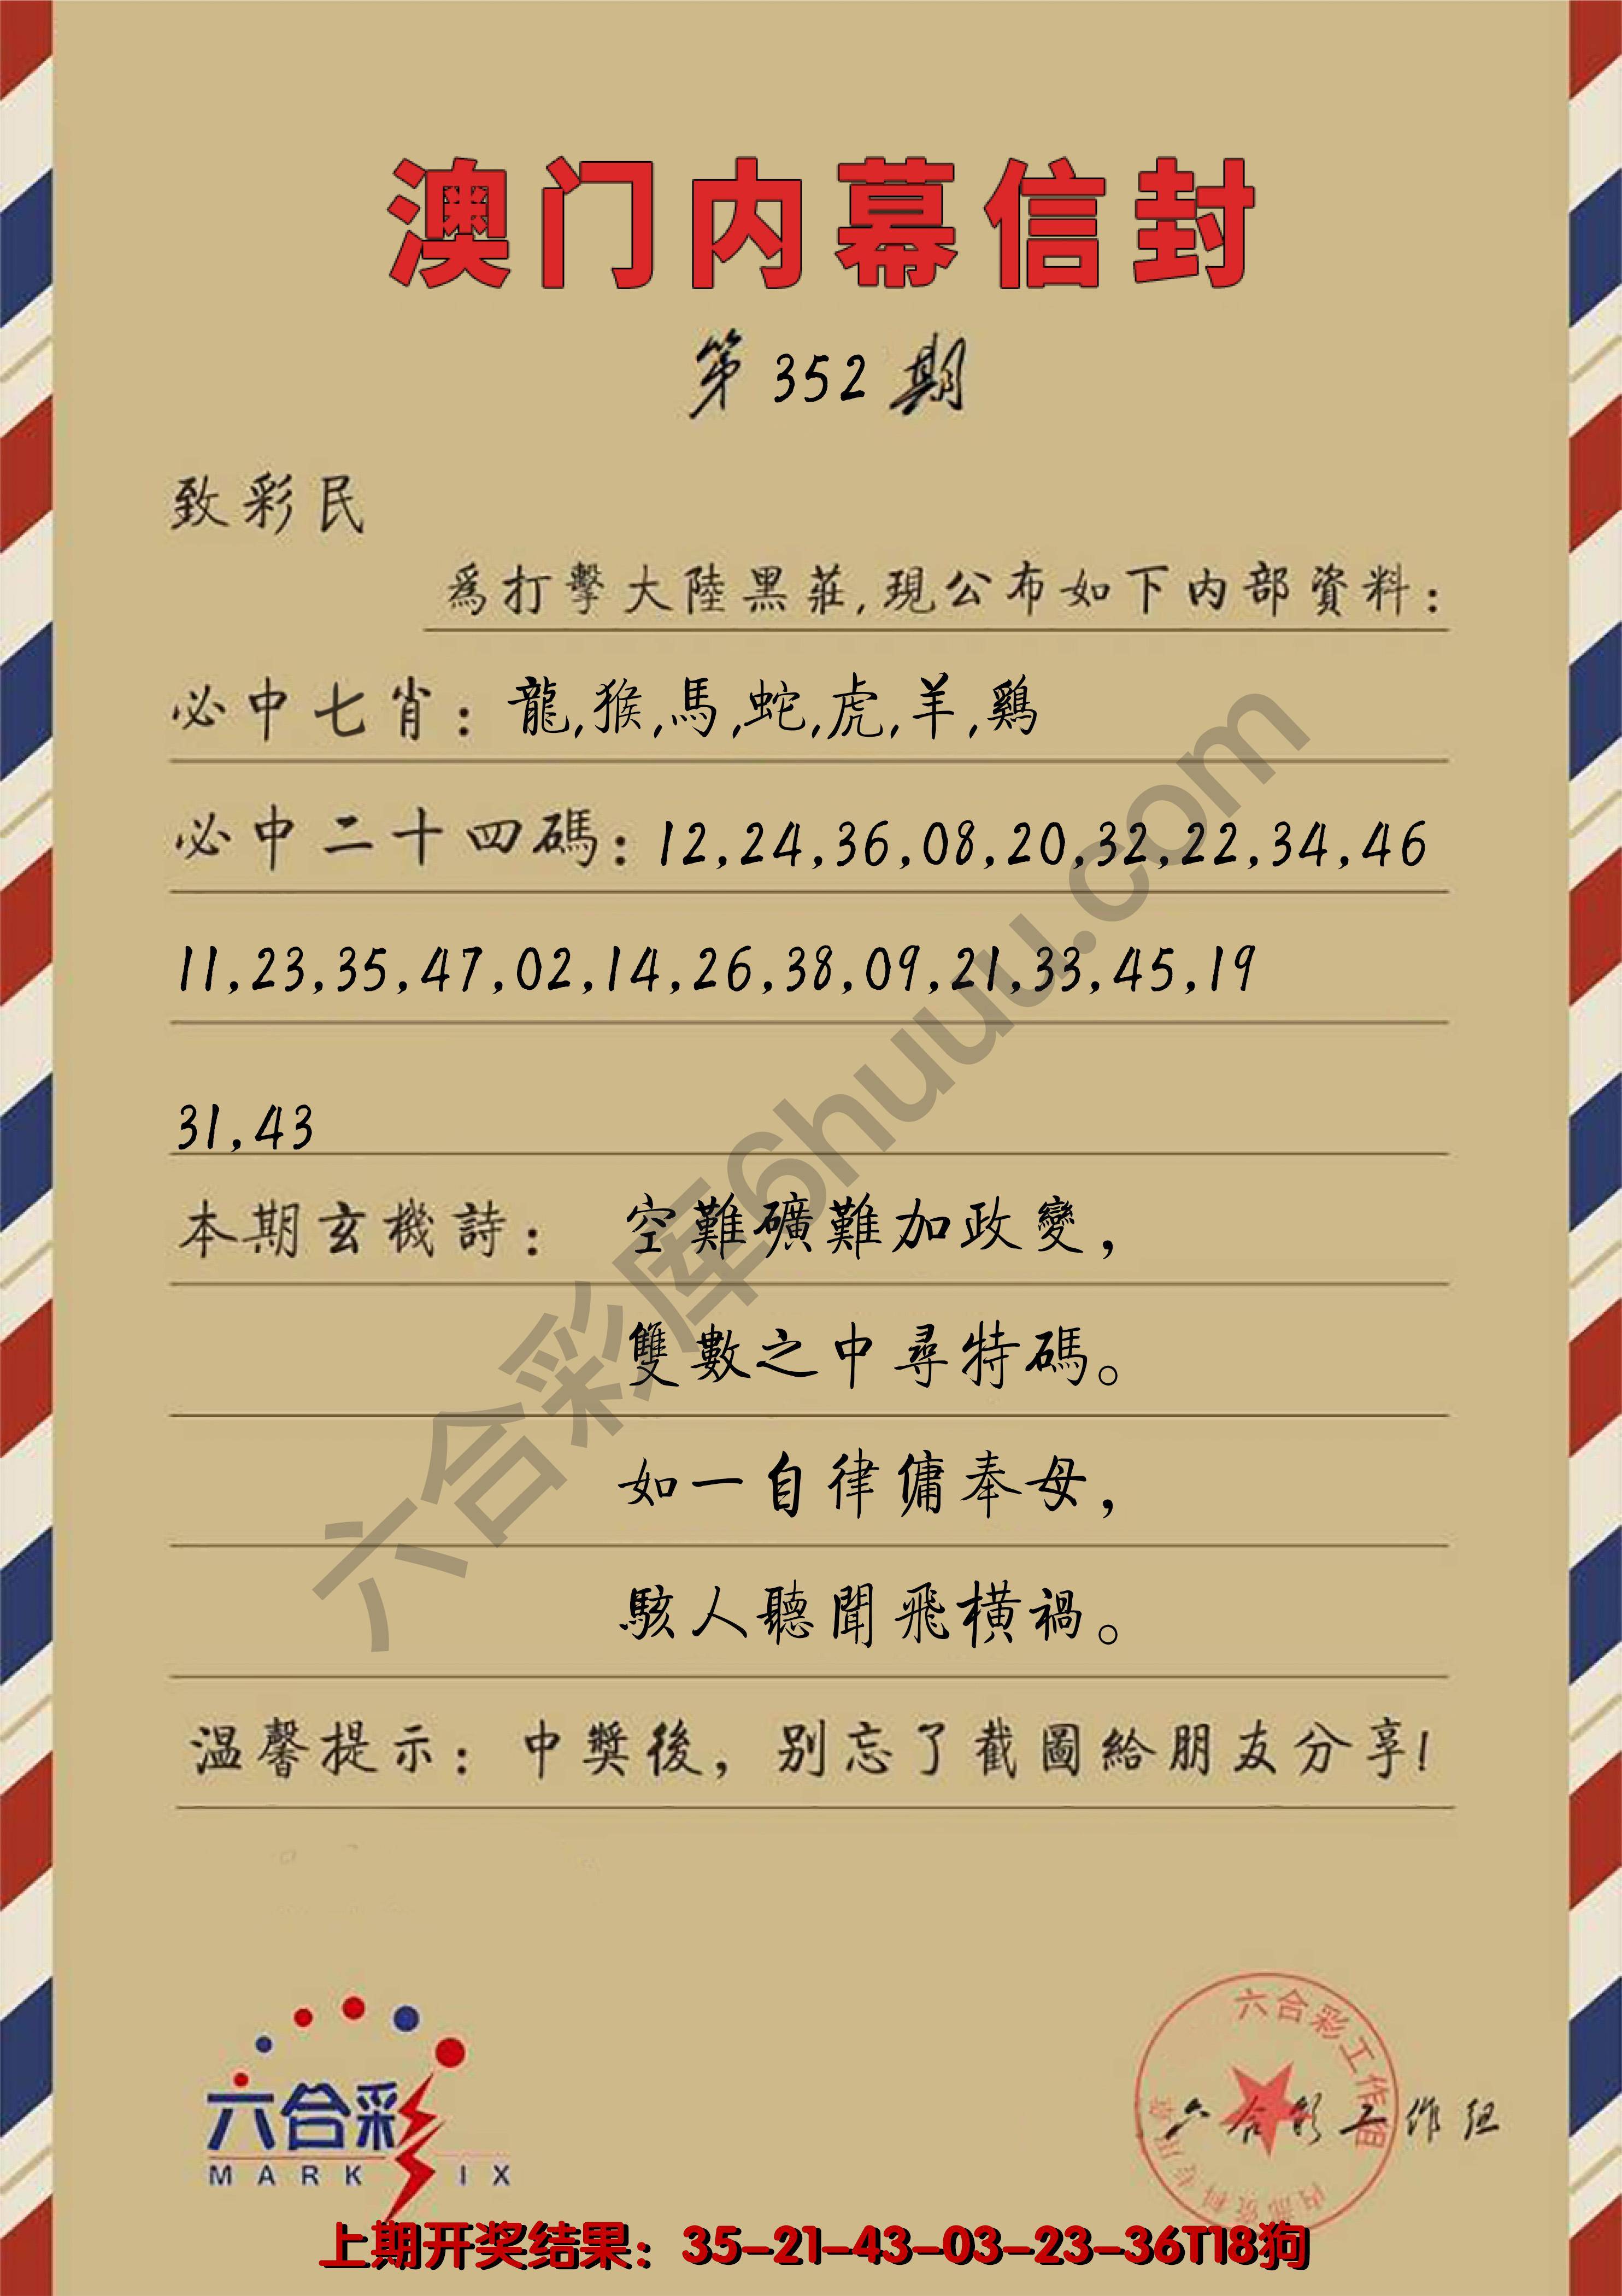 澳门内幕信封
第 352 期
致彩民
為打擊大陸黑莊,現公布如下内部資料:
必中七肖: 龍,猴,馬,蛇,虎,羊,鷄
必中二十四碼: 12,24,36,08,20,32,22,34,46
11,23,35,47,02,14,26,38,09,21,33,45,19
31,43
本期玄機詩: 空難礦難加政變,
雙數之中尋特碼。
如一自律傭奉母,
駭人聽聞飛橫禍。
温馨提示: 中獎後, 别忘了截圖給朋友分享!
六合彩库6huuu.com
六合彩
MARK IX
六合彩工作组
内部资料专用章
六合彩工作组
上期开奖结果: 35-21-43-03-23-36T18狗